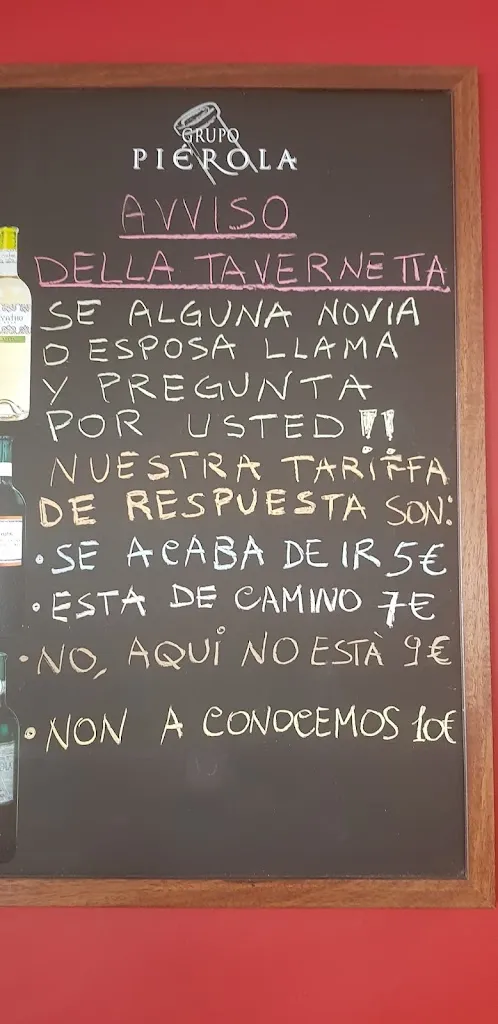 GRUPO
PIÉROLA
AVVISO
DELLA TAVERNETTA
SE ALGUNA NOVIA
O ESPOSA LLAMA
Y PREGUNTA
POR USTED!!
NUESTRA TARIFFA
DE RESPUESTA SON:
• SE ACABA DE IR 5€
• ESTA DE CAMINO 7€
• NO, AQUI NO ESTÀ 9€
• NON A CONOCEMOS 10€